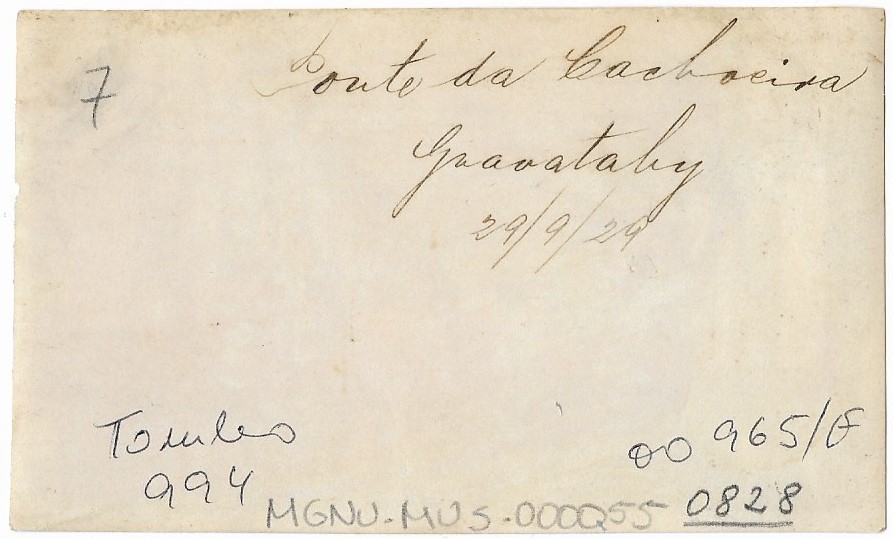 7
Ponte da Cachoeira
Gravatahy
29/9/29
Tombo
994
00965/F
0828
MGNU-MUS-000255